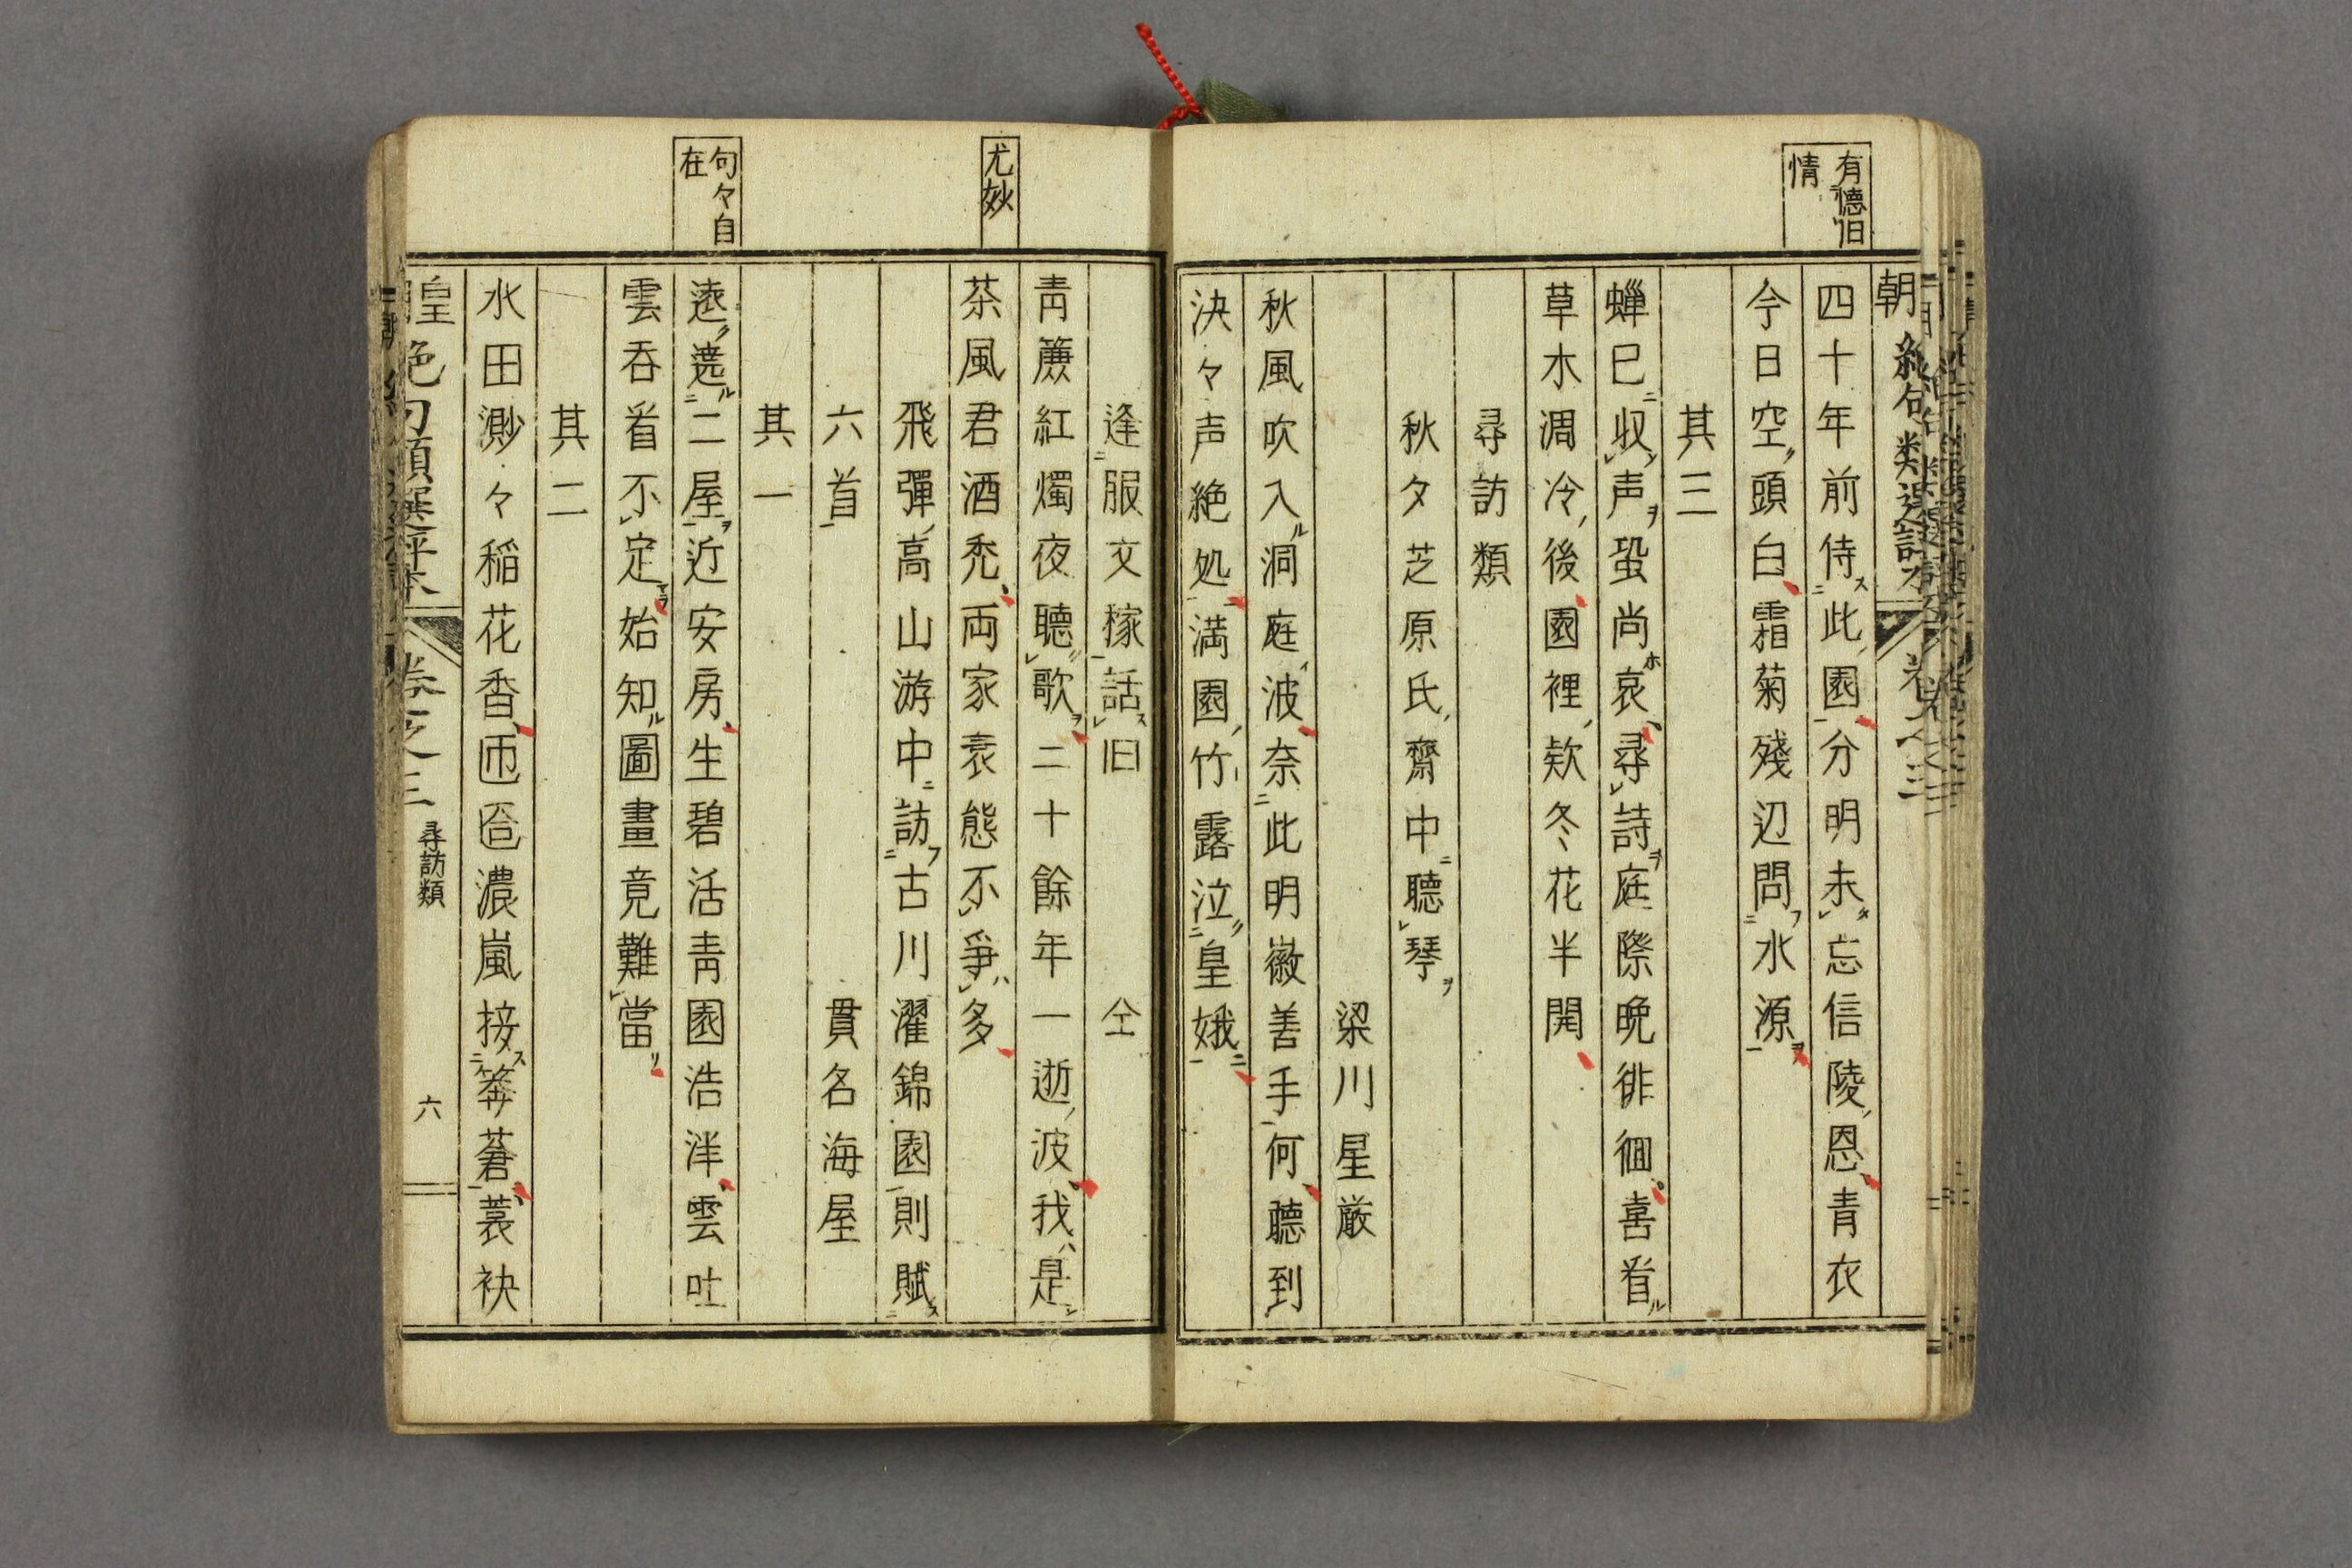 有憶旧
情
朝絶句類選評本 巻之三
四十年前侍此園分明未忘信陵恩青衣
今日空頭白霜菊殘辺問水源
其三
蝉巳収声蛩尚哀尋詩庭際晩徘徊喜看
草木凋冷後園裡欵冬花半開
尋訪類
秋夕芝原氏齋中聽琴
梁川星厳
秋風吹入洞庭波奈此明徽善手何聽到
決々声絶処満園竹露泣皇娥
尤妙
逢服文稼話旧 仝
青簾紅燭夜聽歌二十餘年一逝波我是
茶風君酒禿両家衰態不爭多
飛彈高山游中訪古川濯錦園則賦
六首 貫名海屋
句々自
在
其一
遠遶二屋近安房生碧活青園浩洋雲吐
雲呑看不定始知圖畫竟難當
其二
水田渺々稲花香匝匼濃嵐接箨蒼蓑袂
皇絶句類選評本 巻之三 尋訪類 六